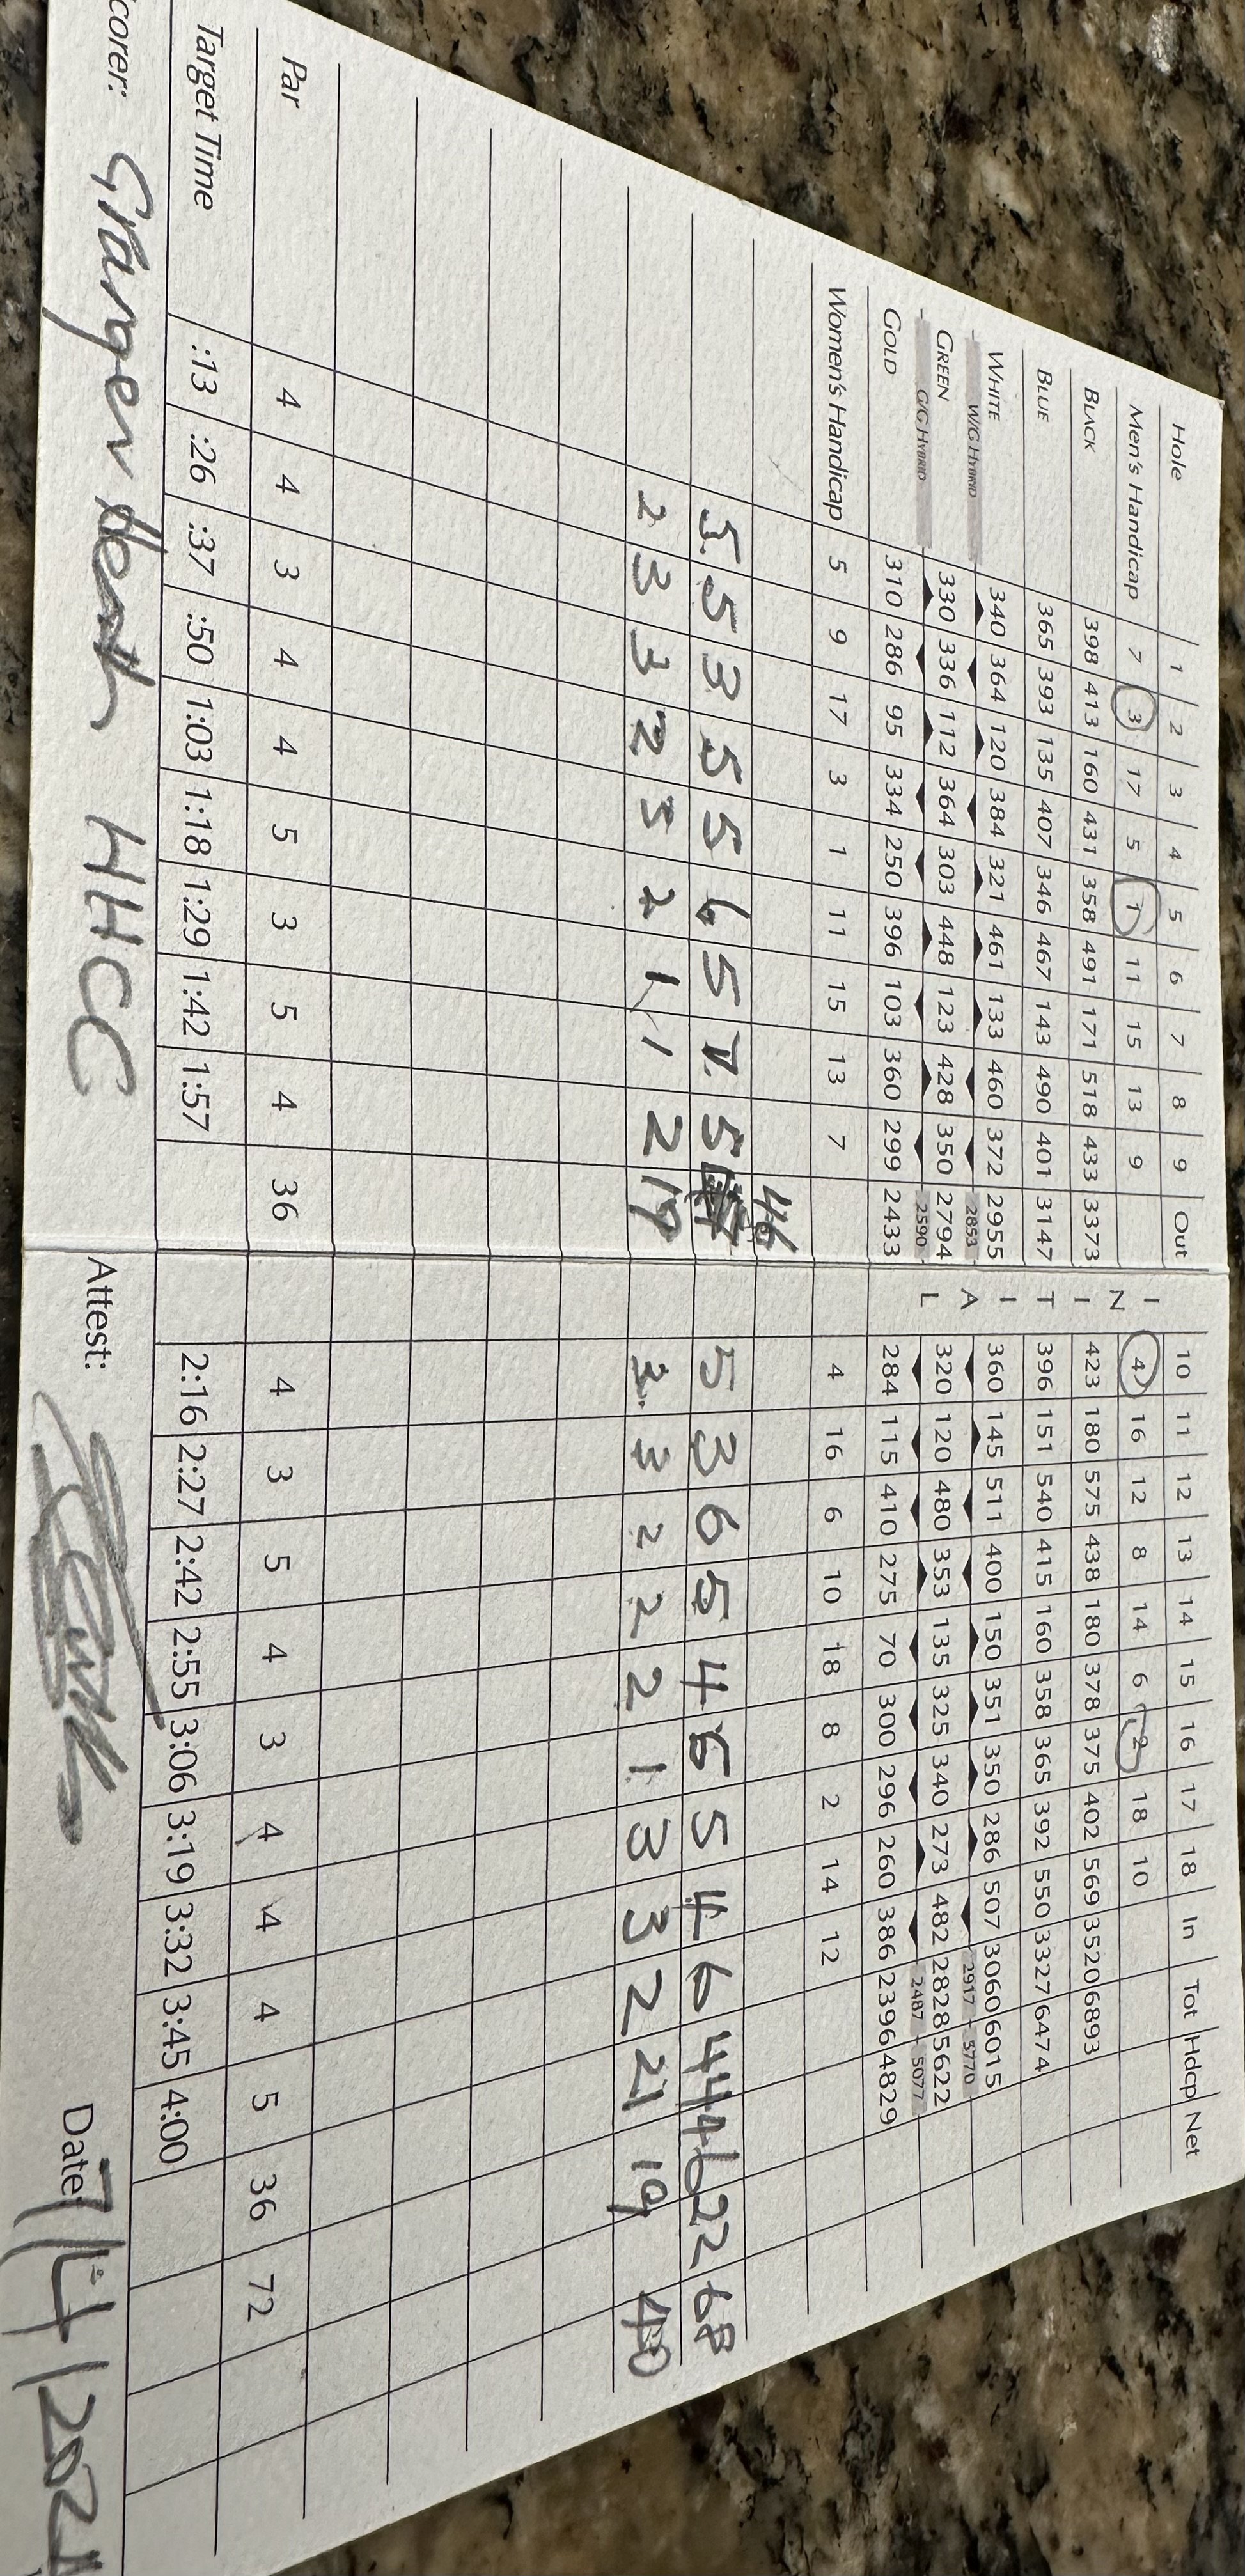 Hole 1 2 3 4 5 6 7 8 9 Out 10 11 12 13 14 15 16 17 18 In Tot Hdcp Net
Men's Handicap 7 3 17 5 1 11 15 13 9 I N I T I A L 4 16 12 8 14 6 2 18 10
BLACK 398 413 160 431 358 491 171 518 433 3373 423 180 575 438 180 378 375 402 569 3520 6893
BLUE 365 393 135 407 346 467 143 490 401 3147 396 151 540 415 160 358 365 392 550 3327 6474
WHITE 340 364 120 384 321 461 133 460 372 2955 360 145 511 400 150 351 350 286 507 3060 6015
W/G HYBRID 2853 2917 5770
GREEN 330 336 112 364 303 448 123 428 350 2794 320 120 480 353 135 325 340 273 482 2828 5622
G/G HYBRID 2590 2487 5077
GOLD 310 286 95 334 250 396 103 360 299 2433 284 115 410 275 70 300 296 260 386 2396 4829
Women's Handicap 5 9 17 3 1 11 15 13 7 4 16 6 10 18 8 2 14 12
46
5 5 3 5 5 6 5 7 5 5 3 6 5 4 6 5 4 6 44 22 68
2 3 3 2 3 2 1 1 2 19 3 3 2 2 2 1 3 3 2 21 19 40
Par 4 4 3 4 4 5 3 5 4 36 4 3 5 4 3 4 4 4 5 36 72
Target Time :13 :26 :37 :50 1:03 1:18 1:29 1:42 1:57 2:16 2:27 2:42 2:55 3:06 3:19 3:32 3:45 4:00
corer: HHCC Attest: Date: